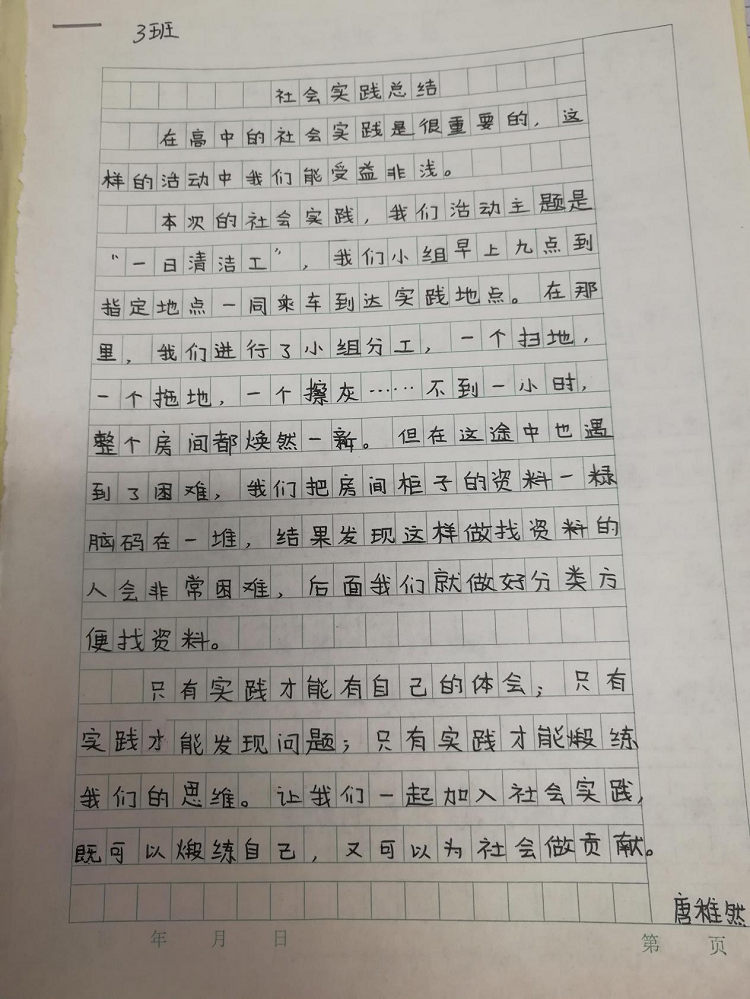 3班
社会实践总结
在高中的社会实践是很重要的，这
样的活动中我们能受益非浅。
本次的社会实践，我们活动主题是
“一日清洁工”，我们小组早上九点到
指定地点一同乘车到达实践地点。在那
里，我们进行了小组分工，一个扫地，
一个拖地，一个擦灰……不到一小时，
整个房间都焕然一新。但在这途中也遇
到了困难，我们把房间柜子的资料一
脑码在一堆，结果发现这样做找资料的
人会非常困难，后面我们就做好分类方
便找资料。
只有实践才能有自己的体会；只有
实践才能发现问题；只有实践才能煅练
我们的思维。让我们一起加入社会实践，
既可以煅练自己，又可以为社会做贡献。
唐稚然
年 月 日 第 页